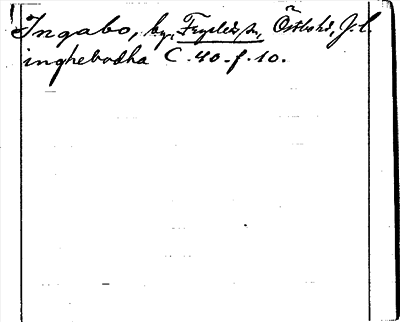 Ingabo, by, Fryeleds sn, Östbohd, J. l.
inghebodha C. 40. f. 10.